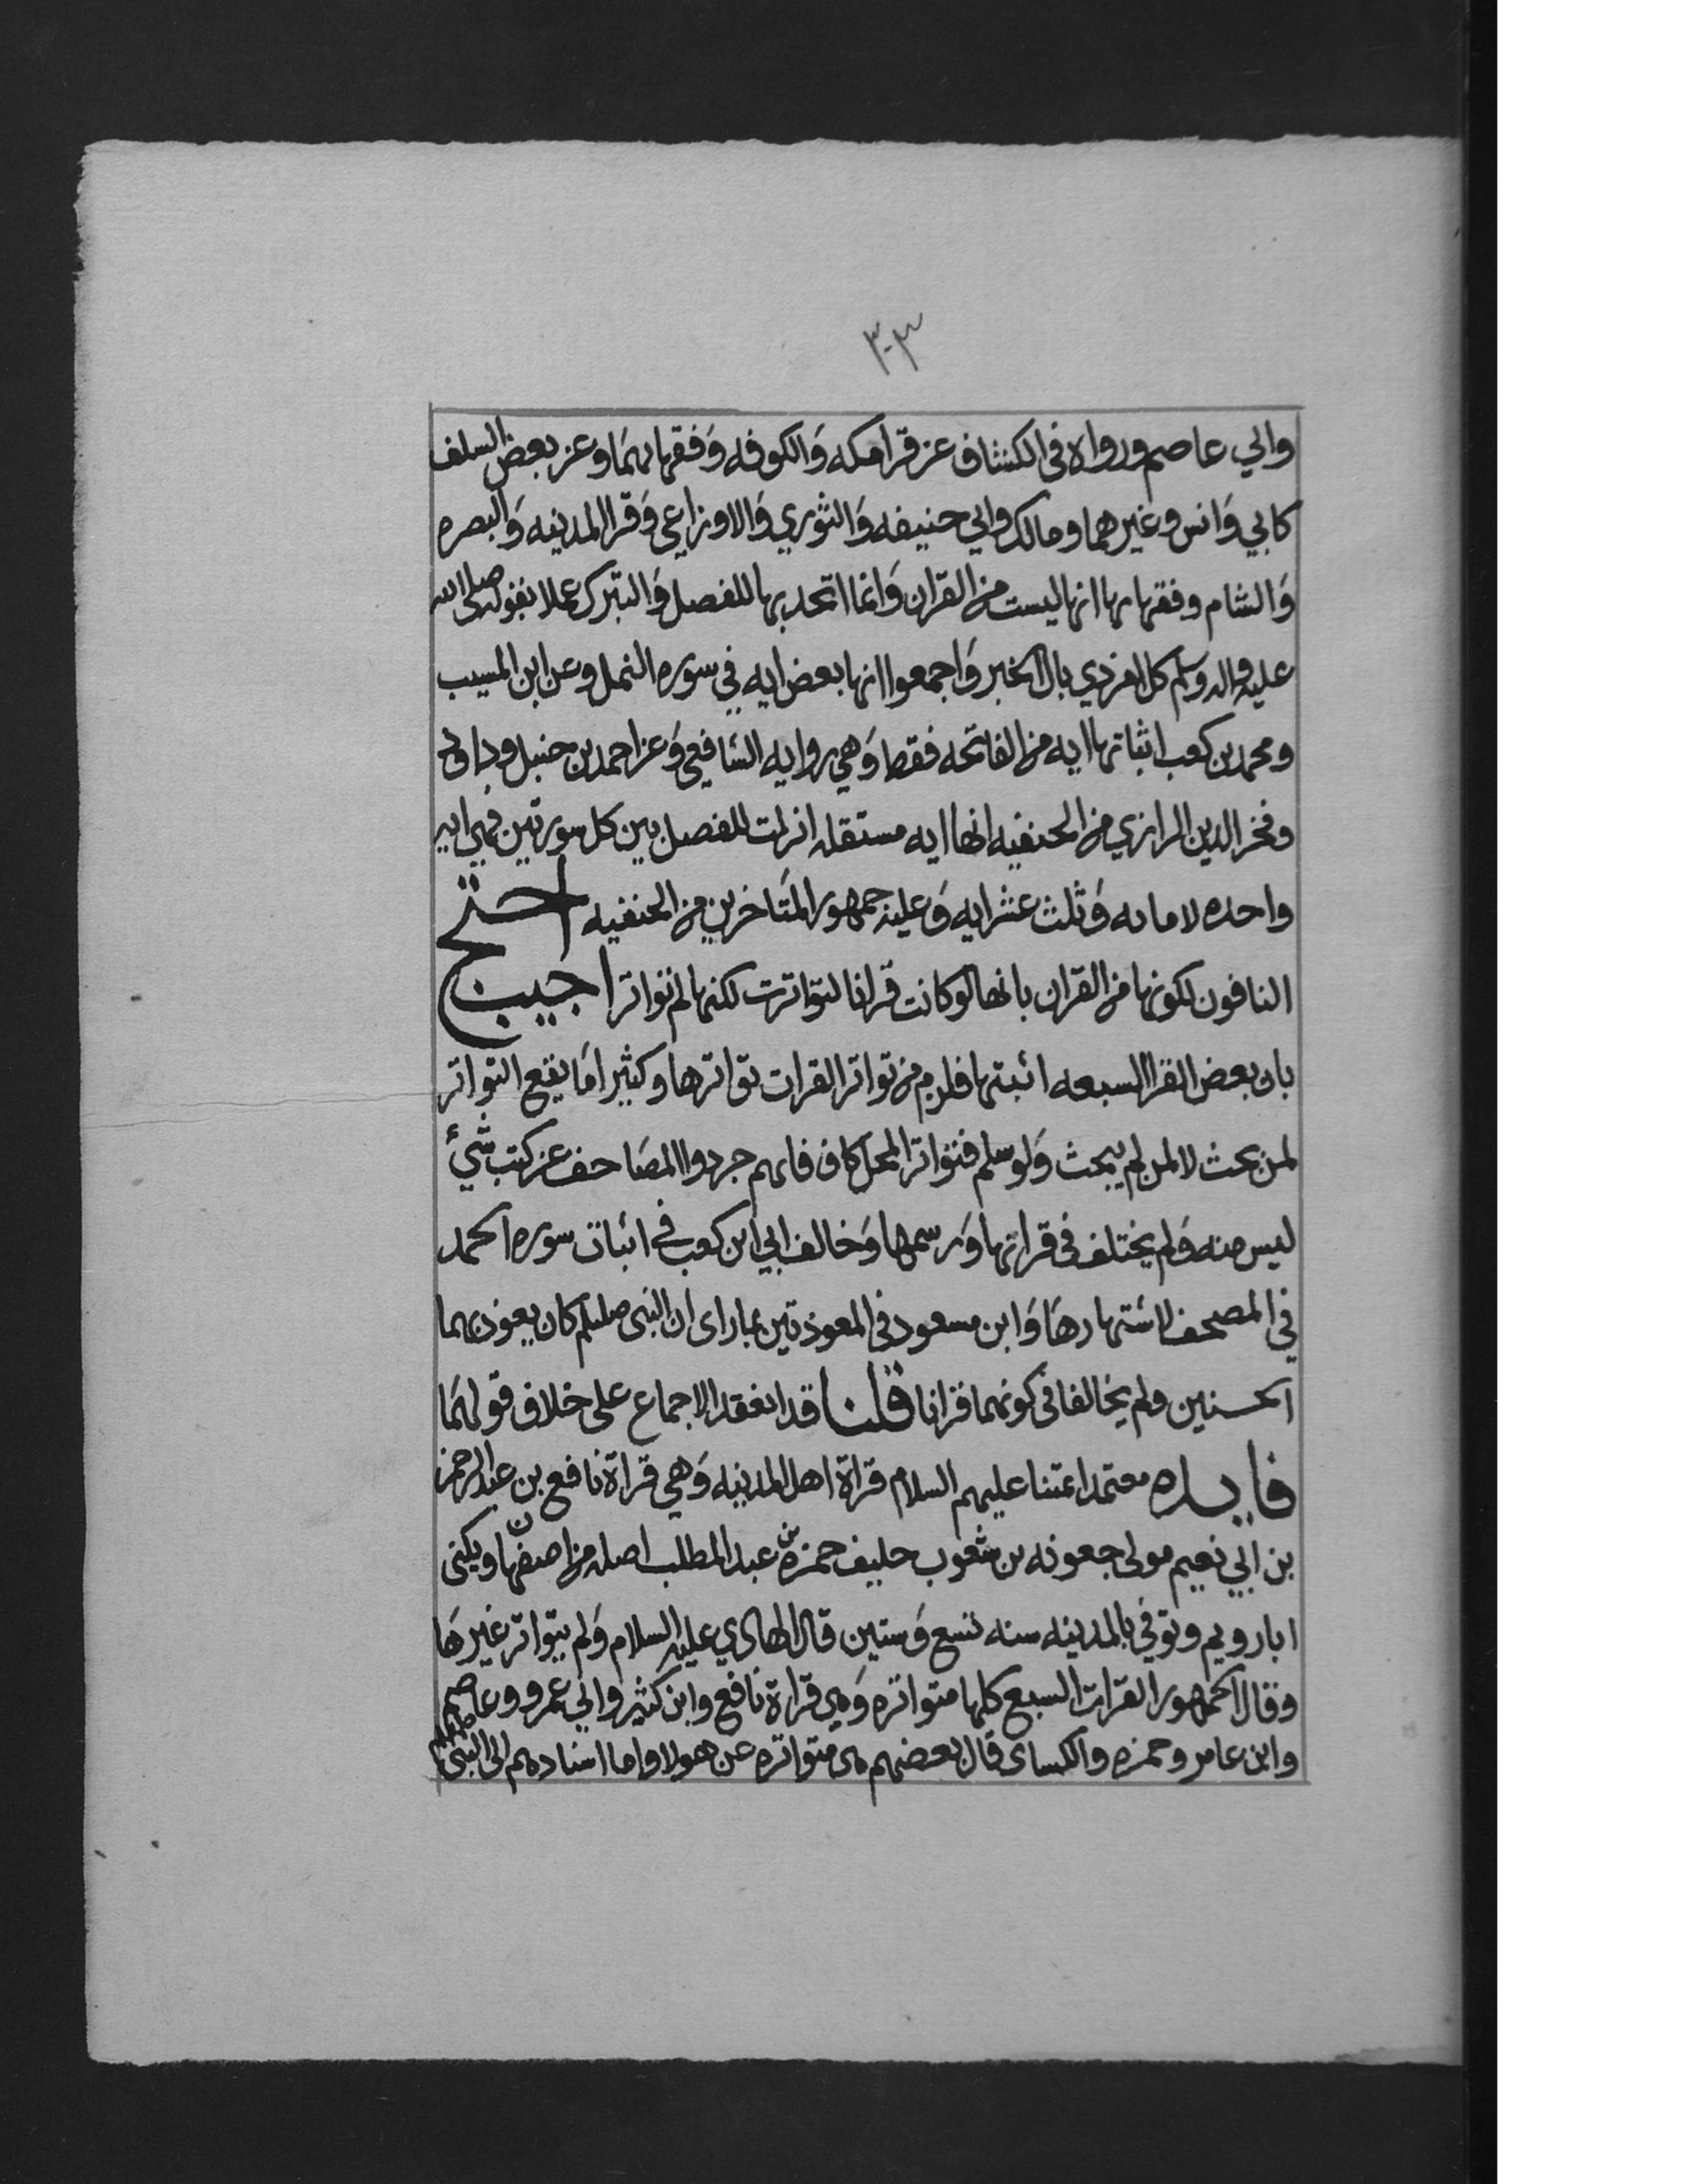 ٣٠٣
وابي عاصم ورواه في الكشاف عن قرا مكه والكوفه وفقهايهما وعن بعض السلف
كابي وانس وغيرهما ومالك وابي حنيفه والثوري والاوزاعي وقرا المدينه والبصره
والشام وفقهايها انها ليست من القران وانما اتحد بها للفصل والتبرك عملا بقوله صلى الله
عليه واله وسلم كل امر ذي بال الخبر واجمعوا انها بعض ايه في سوره النمل وعن ابن المسيب
ومحمد بن كعب اثباتها ايه من الفاتحه فقط وهي روايه الشافعي وعن احمد بن حنبل وداود
وفخر الدين الرازي من الحنفيه انها ايه مستقله انزلت للفصل بين كل سورتين فهي ايه
واحده لا مايه وثلث عشر ايه وعليه جمهور المتاخرين من الحنفيه احتج
النافون لكونها من القران بانها لو كانت قرانا لتواترت لكنها لم تواتر اجيب
بان بعض القرا السبعه اثبتها فلزم من تواتر القرات تواترها وكثيرا ما يقع التواتر
لمن بحث لا لمن لم يبحث ولو سلم فتواتر المحل كاف فانهم جردوا المصاحف عن كتب شيء
ليس منه ولم يختلف في قراتها ورسمها وخالف ابي ابن كعب في اثبات سوره الحمد
في المصحف لاشتهارها وابن مسعود في المعوذتين لما راى ان النبي صللم كان يعوذ بهما
الحسنين ولم يخالفا في كونهما قرانا قلنا قد انعقد الاجماع على خلاف قولهما
فايده معتمد ائمتنا عليهم السلام قراة اهل المدينه وهي قراة نافع بن عبد الرحمن
بن ابي نعيم مولى جعونه بن شعوب حليف حمزه بن عبد المطلب اصله من اصفهان ويكنى
ابا رويم وتوفي بالمدينه سنه تسع وستين قال الهادي عليه السلام ولم يتواتر غيرها
وقال الجمهور القرات السبع كلها متواتره وهي قراة نافع وابن كثير وابي عمرو وعاصم
وابن عامر وحمزه والكساى قال بعضهم هي متواتره عن هولا واما اسنادهم الى النبي صللم